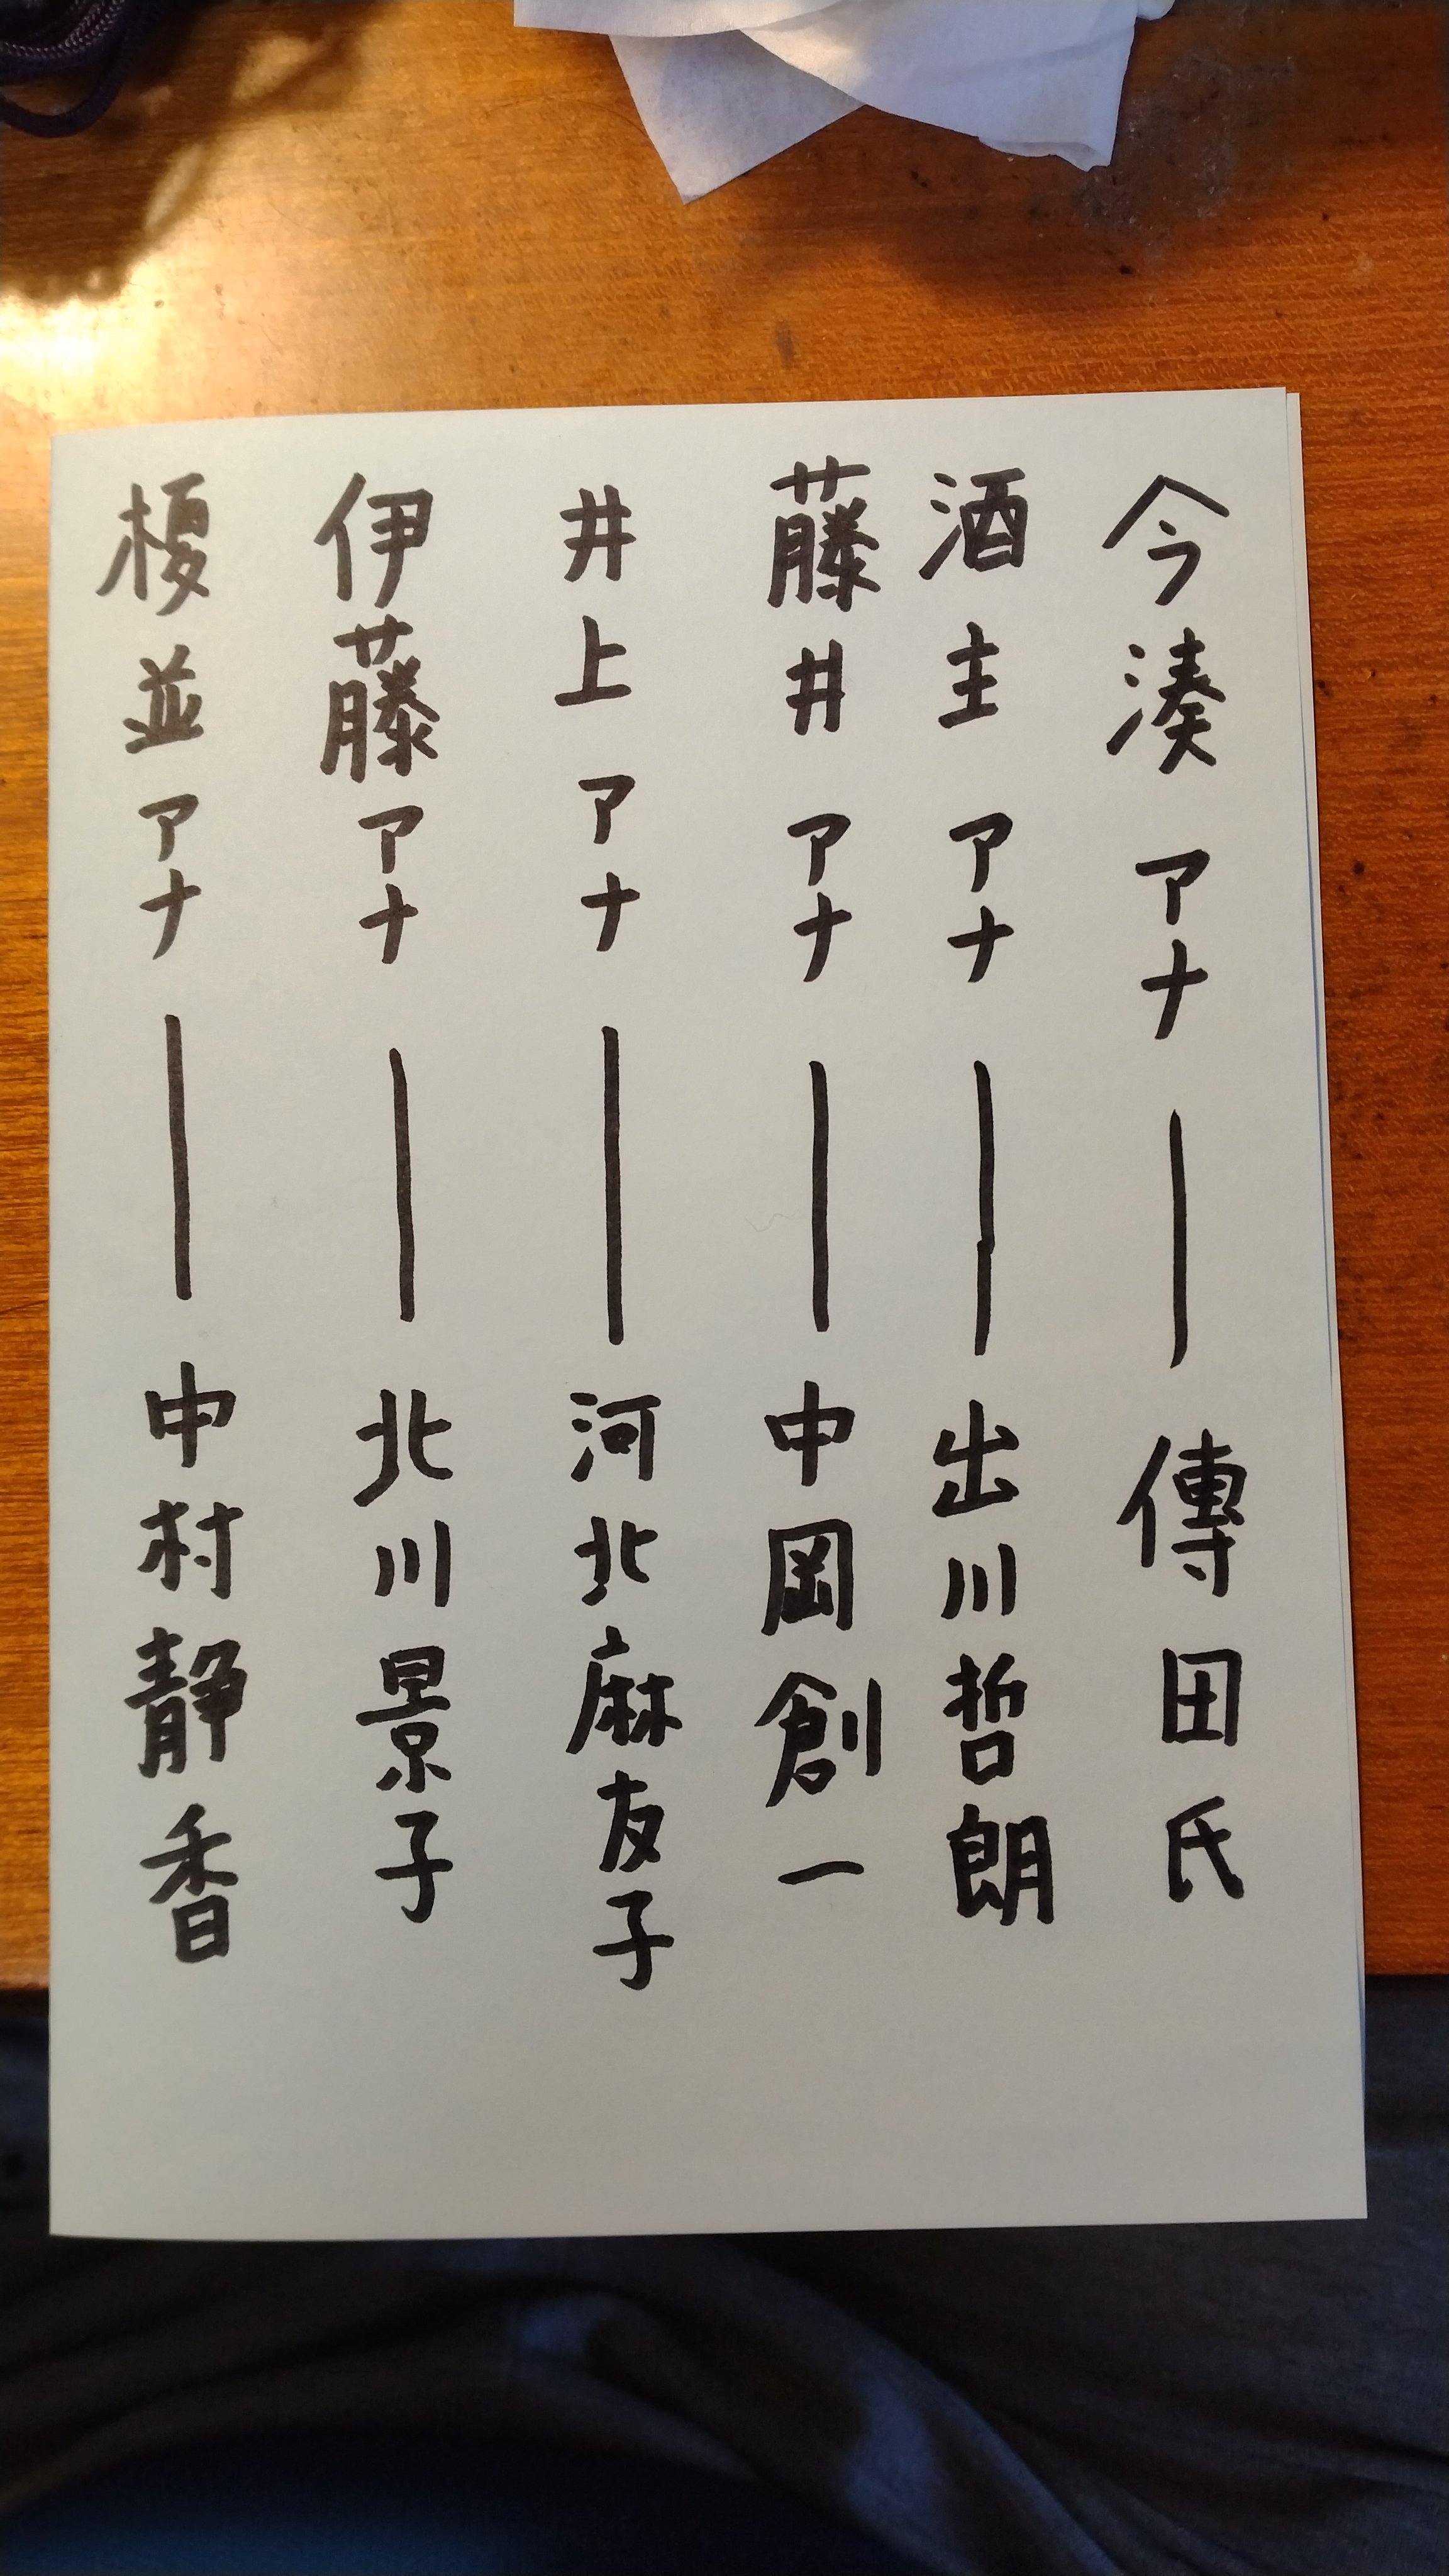 今湊アナ―傳田氏
酒主アナ―出川哲朗
藤井アナ―中岡創一
井上アナ―河北麻友子
伊藤アナ―北川景子
榎並アナ―中村静香